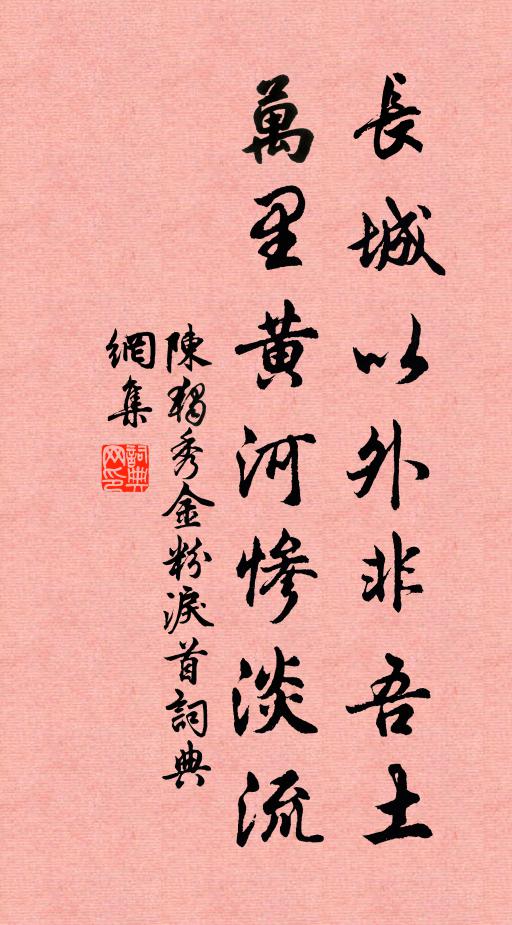 長城以外非吾土
萬里黃河慘淡流
陳獨秀金粉淚首詞典
網集
詞典
网印